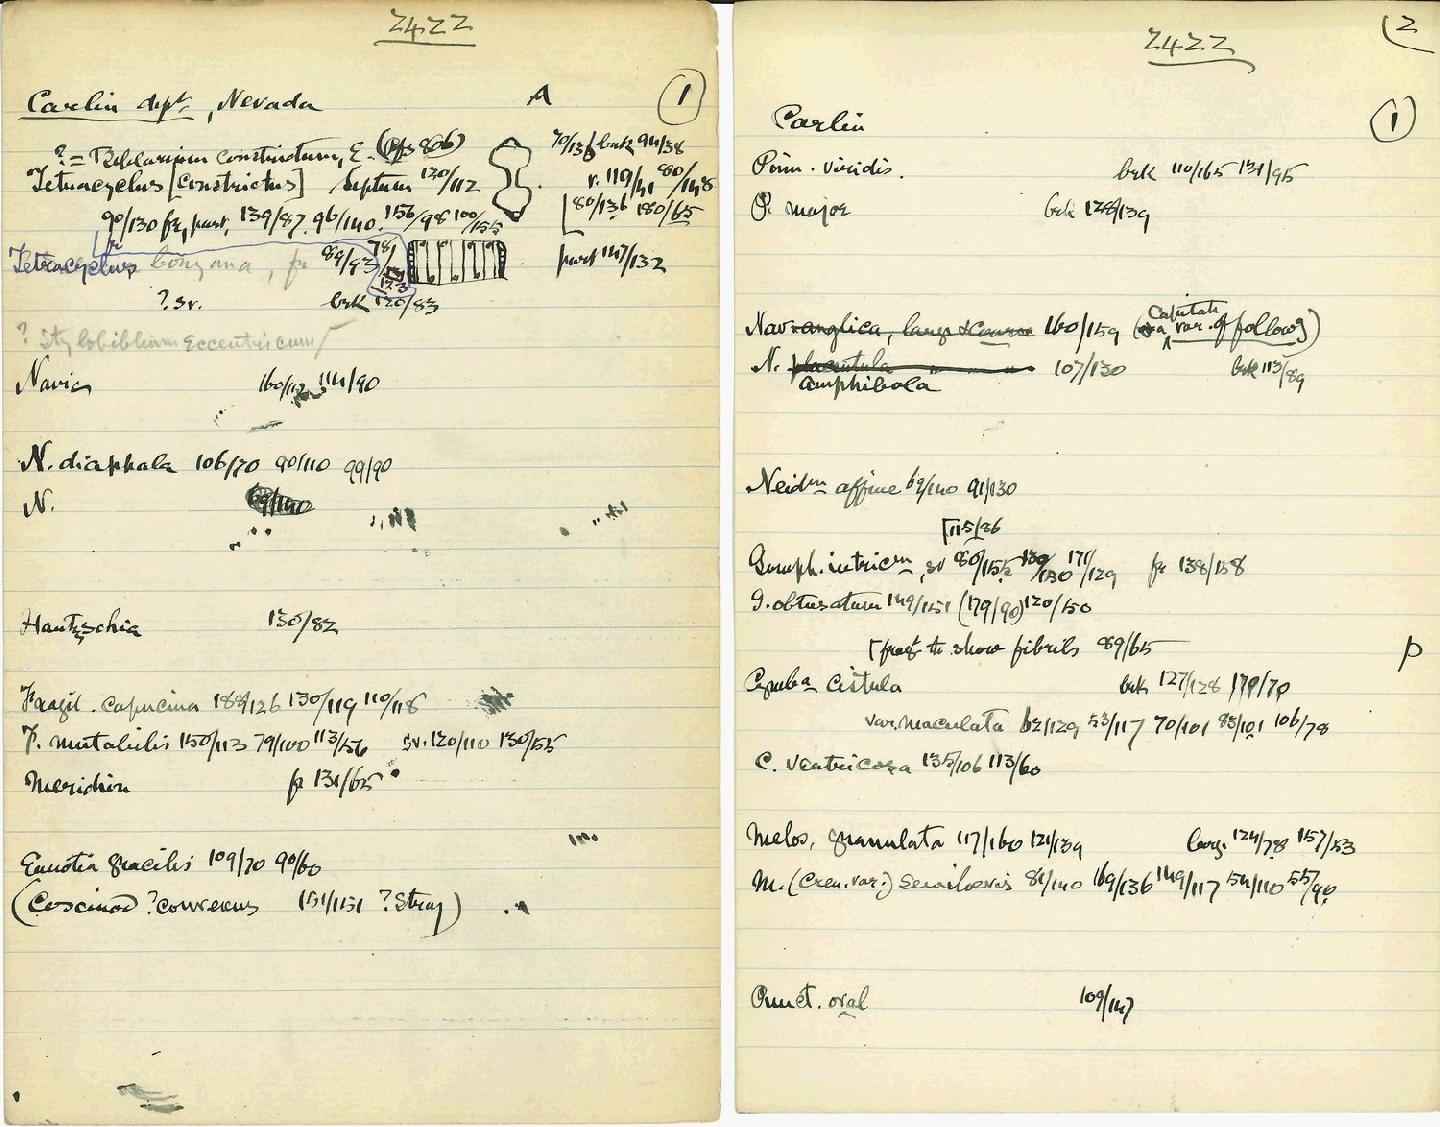 2422
Carlin dept, Nevada A 1
? = Biblarium constrictum, E. (Pfs 806) 70/136 brk 94/38
Tetracyclus [constrictus] Septum 120/112 v. 119/41 80/148
90/130 fr, part, 139/87, 96/140. 156/98 100/155 80/136 180/65
fr
Tetracyclus bonyana, fr 89/93 78/123 part 147/132
? sv. brk 120/83
? Stylobiblium eccentricum
Navic 111/90
N. diaphala 106/70 90/110 99/90
N. 69/140
Hantzschia 130/82
Fragil. capucina 188/126 130/119 110/118
F. mutabilis 150/113 79/100 113/56 sv. 120/110 130/55
Meridion fr 131/65
Eunotia gracilis 109/70 90/60
(Coscinod ? convexus 151/151 ? Stray)
2422 2
Carlin 1
Pinn. viridis. brk 110/165 131/95
P. major brk 128/139
Nav. anglica, large & coarse 160/159 (a capitate var. of follows)
N. placentula 107/130 brk 113/89
amphibola
Neidm affine 69/140 91/130
115/86
Gomph. intricm, sv 80/155 130/130 171/129 fr 138/158
G. obtusatum 149/151 (179/90) 120/150
[frag to show fibrils 89/65 p
Cymba cistula brk 127/128 170/70
var. maculata 62/129 53/117 70/101 85/101 106/78
C. ventricosa 135/106 113/60
Melos, granulata 117/160 121/139 large 124/78 157/53
M. (Cren. var.) semilaevis 81/140 169/136 149/117 54/110 55/90
Punct. oral 109/147